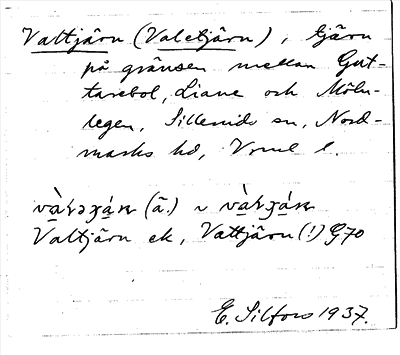 Valtjärn (Valetjärn), tjärn
på gränsen mellan Gut-
tarebol, Liane och Möln-
legen, Silleruds sn, Nord-
marks hd, Vrml l.
(ā.) ~
Valtjärn ek, Vattjärn (!) G70
E. Silfors 1937.